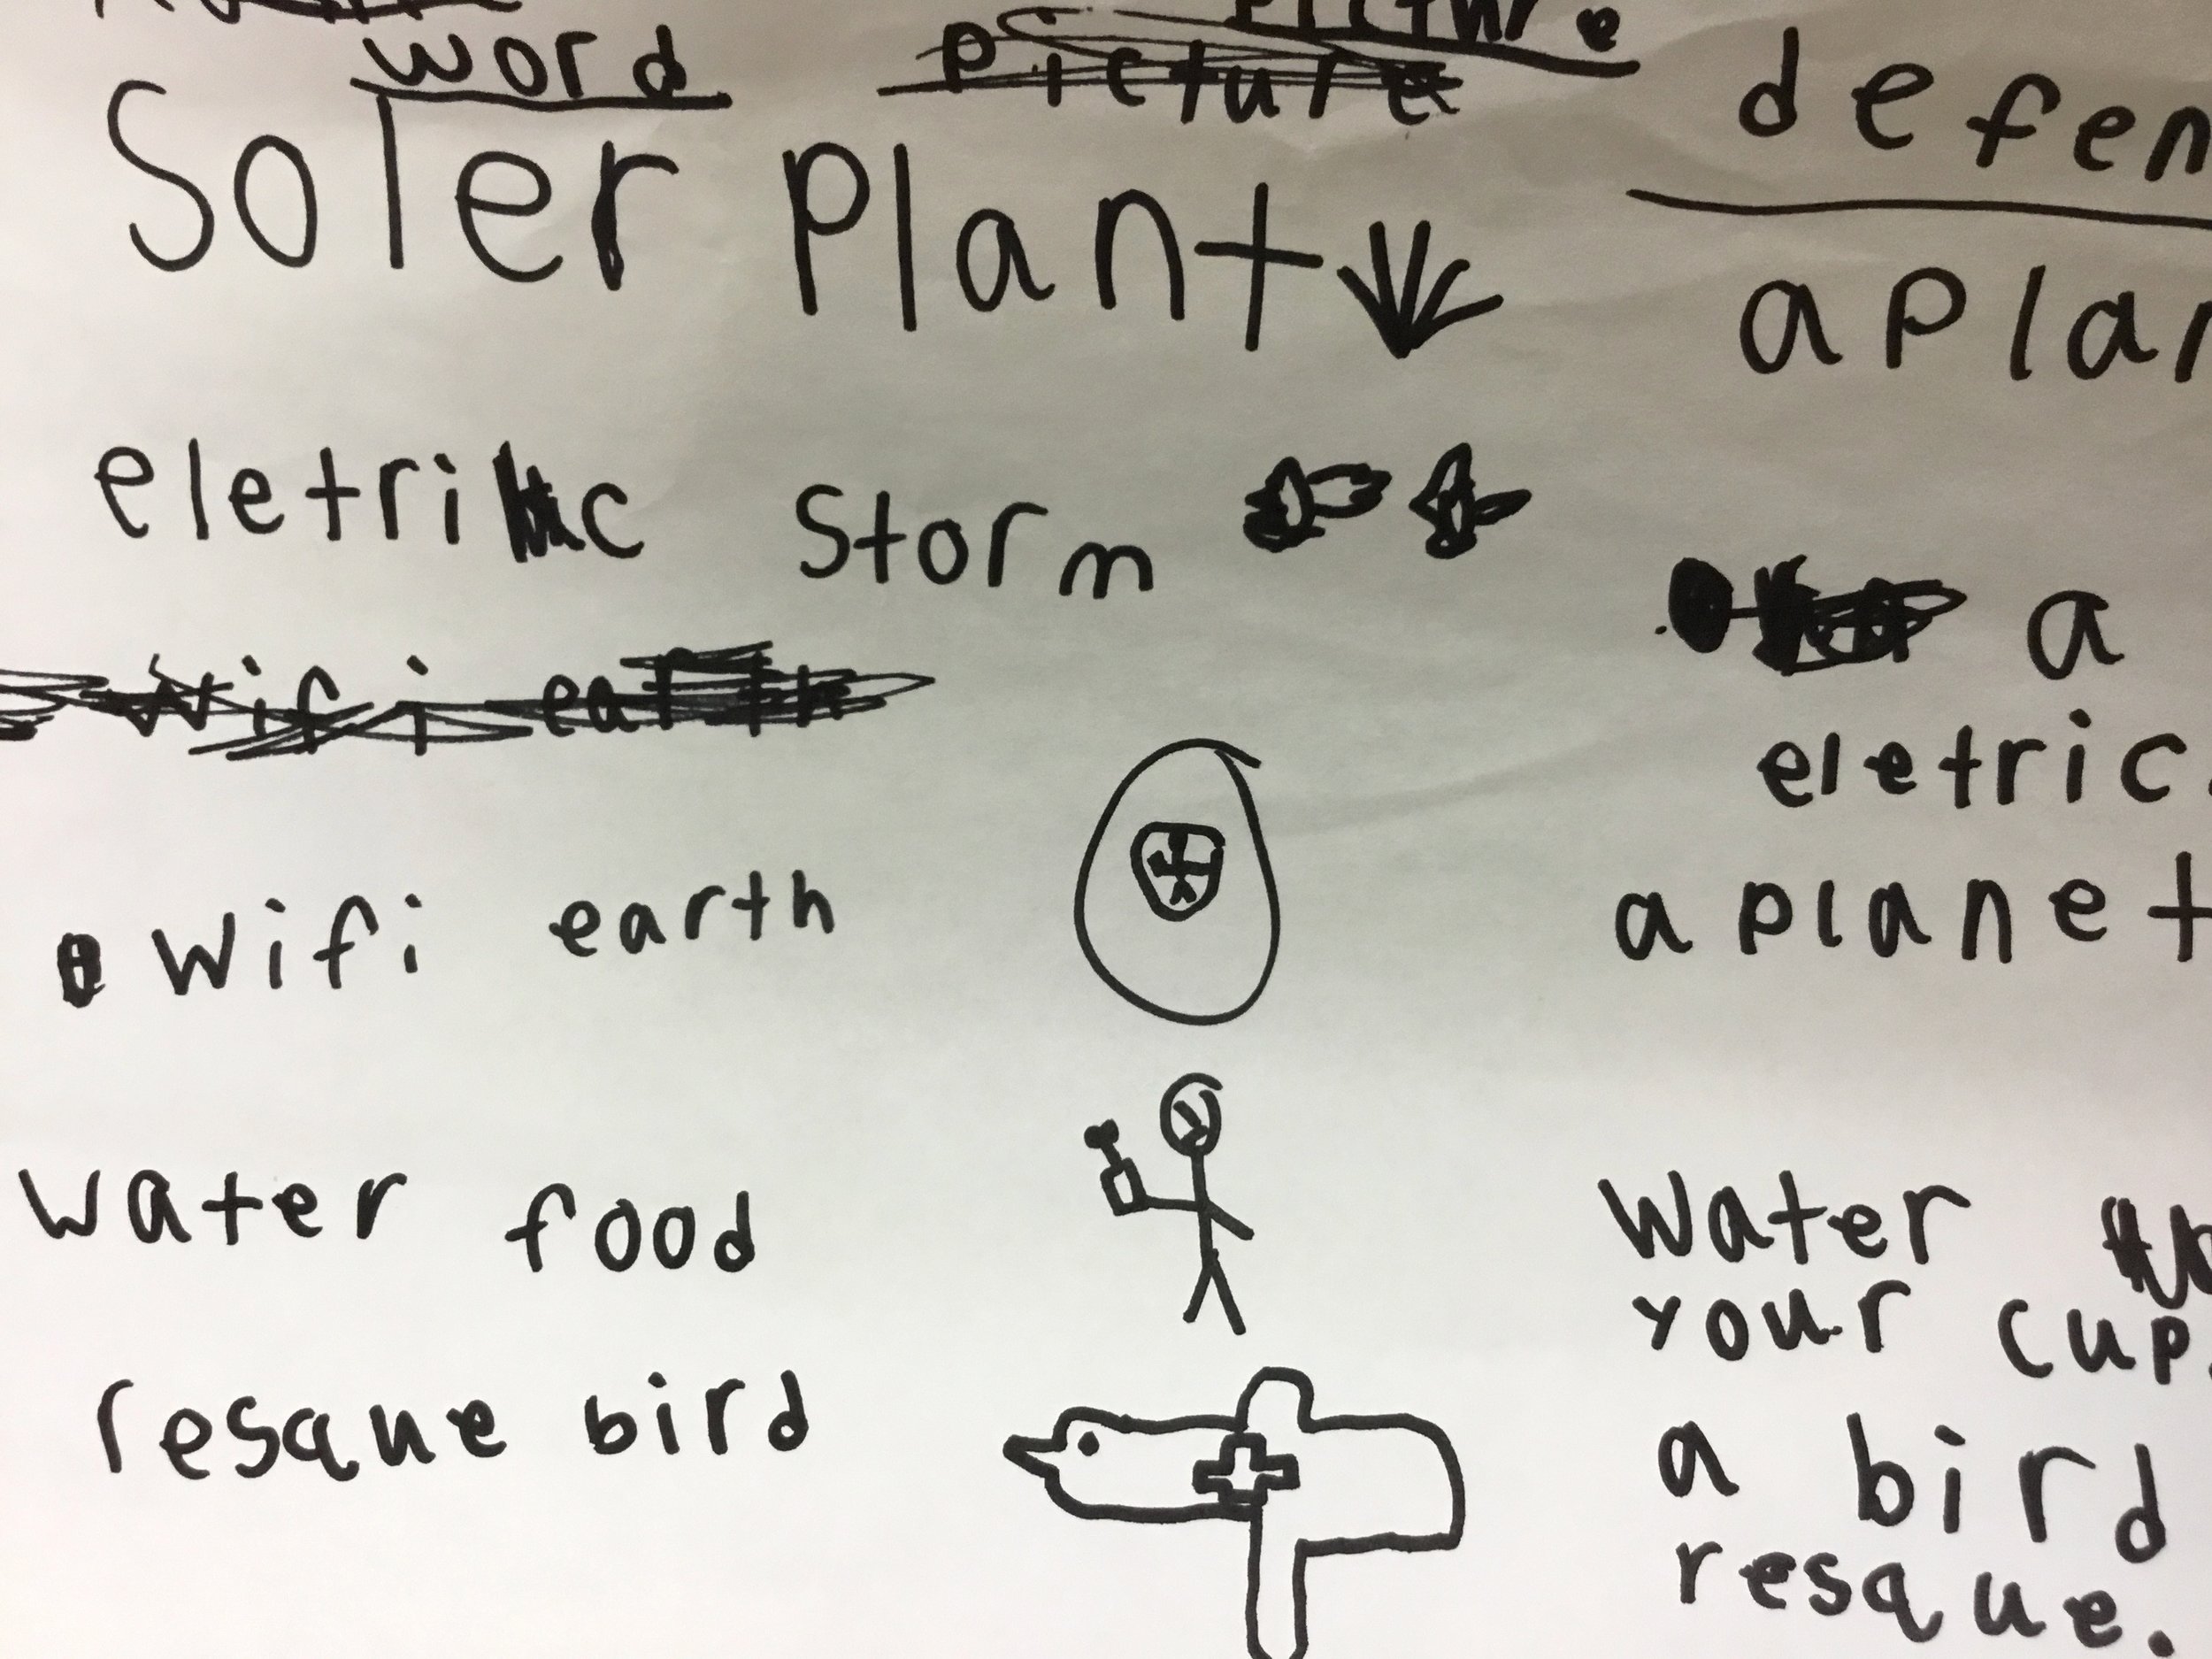 word picture picture defen
Soler Plant a plan
eletric Storm
a
wifi earth
eletric.
wifi earth a planet
water food water
your cup.
resque bird a bird
resque.